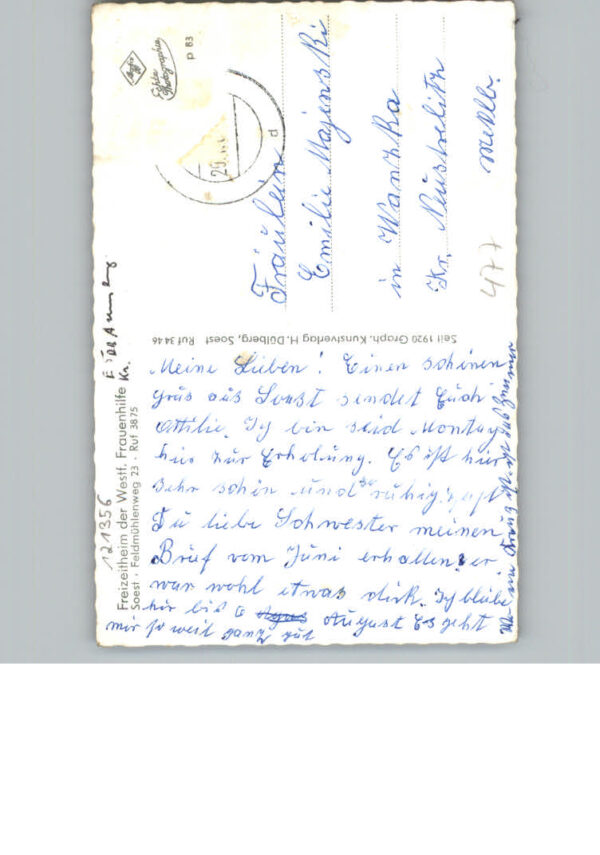 Agfa
Echte
Photographie
P 83
29.
d
Fräulein
Emilie Majenski
in Wanzka
Kr. Neustrelitz
Meklb.
477
Seit 1920 Graph. Kunstverlag H. Dülberg, Soest Ruf 3446
121356
Freizeitheim der Westf. Frauenhilfe
Soest · Feldmühlenweg 23 · Ruf 3875
Kr.
Meine Lieben! Einen schönen
Grus aus Soest sendet Euch
Ottilie. Ich bin seid Montag
hir zur Erholung. Es ist hir
Sehr schön und so ruhig. hast
Du liebe Schwester meinen
Brief vom Juni erhalten? er
war wohl etwas dick. Ich bleibe
hir bis 6 August Es geht
mir so weit ganz gut
Wo ein Kreuz ist ist das Zimmer